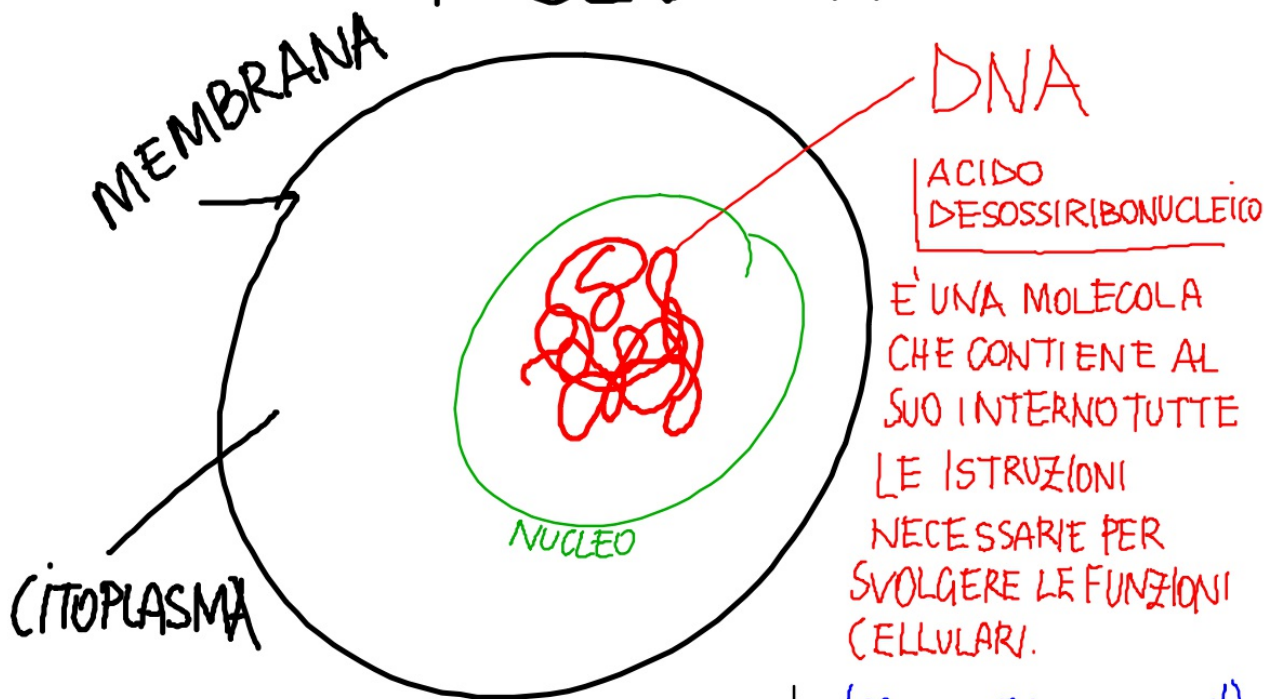 MEMBRANA
DNA
ACIDO
DESOSSIRIBONUCLEICO
E' UNA MOLECOLA
CHE CONTIENE AL
SUO INTERNO TUTTE
LE ISTRUZIONI
NECESSARIE PER
SVOLGERE LE FUNZIONI
CELLULARI.
NUCLEO
CITOPLASMA